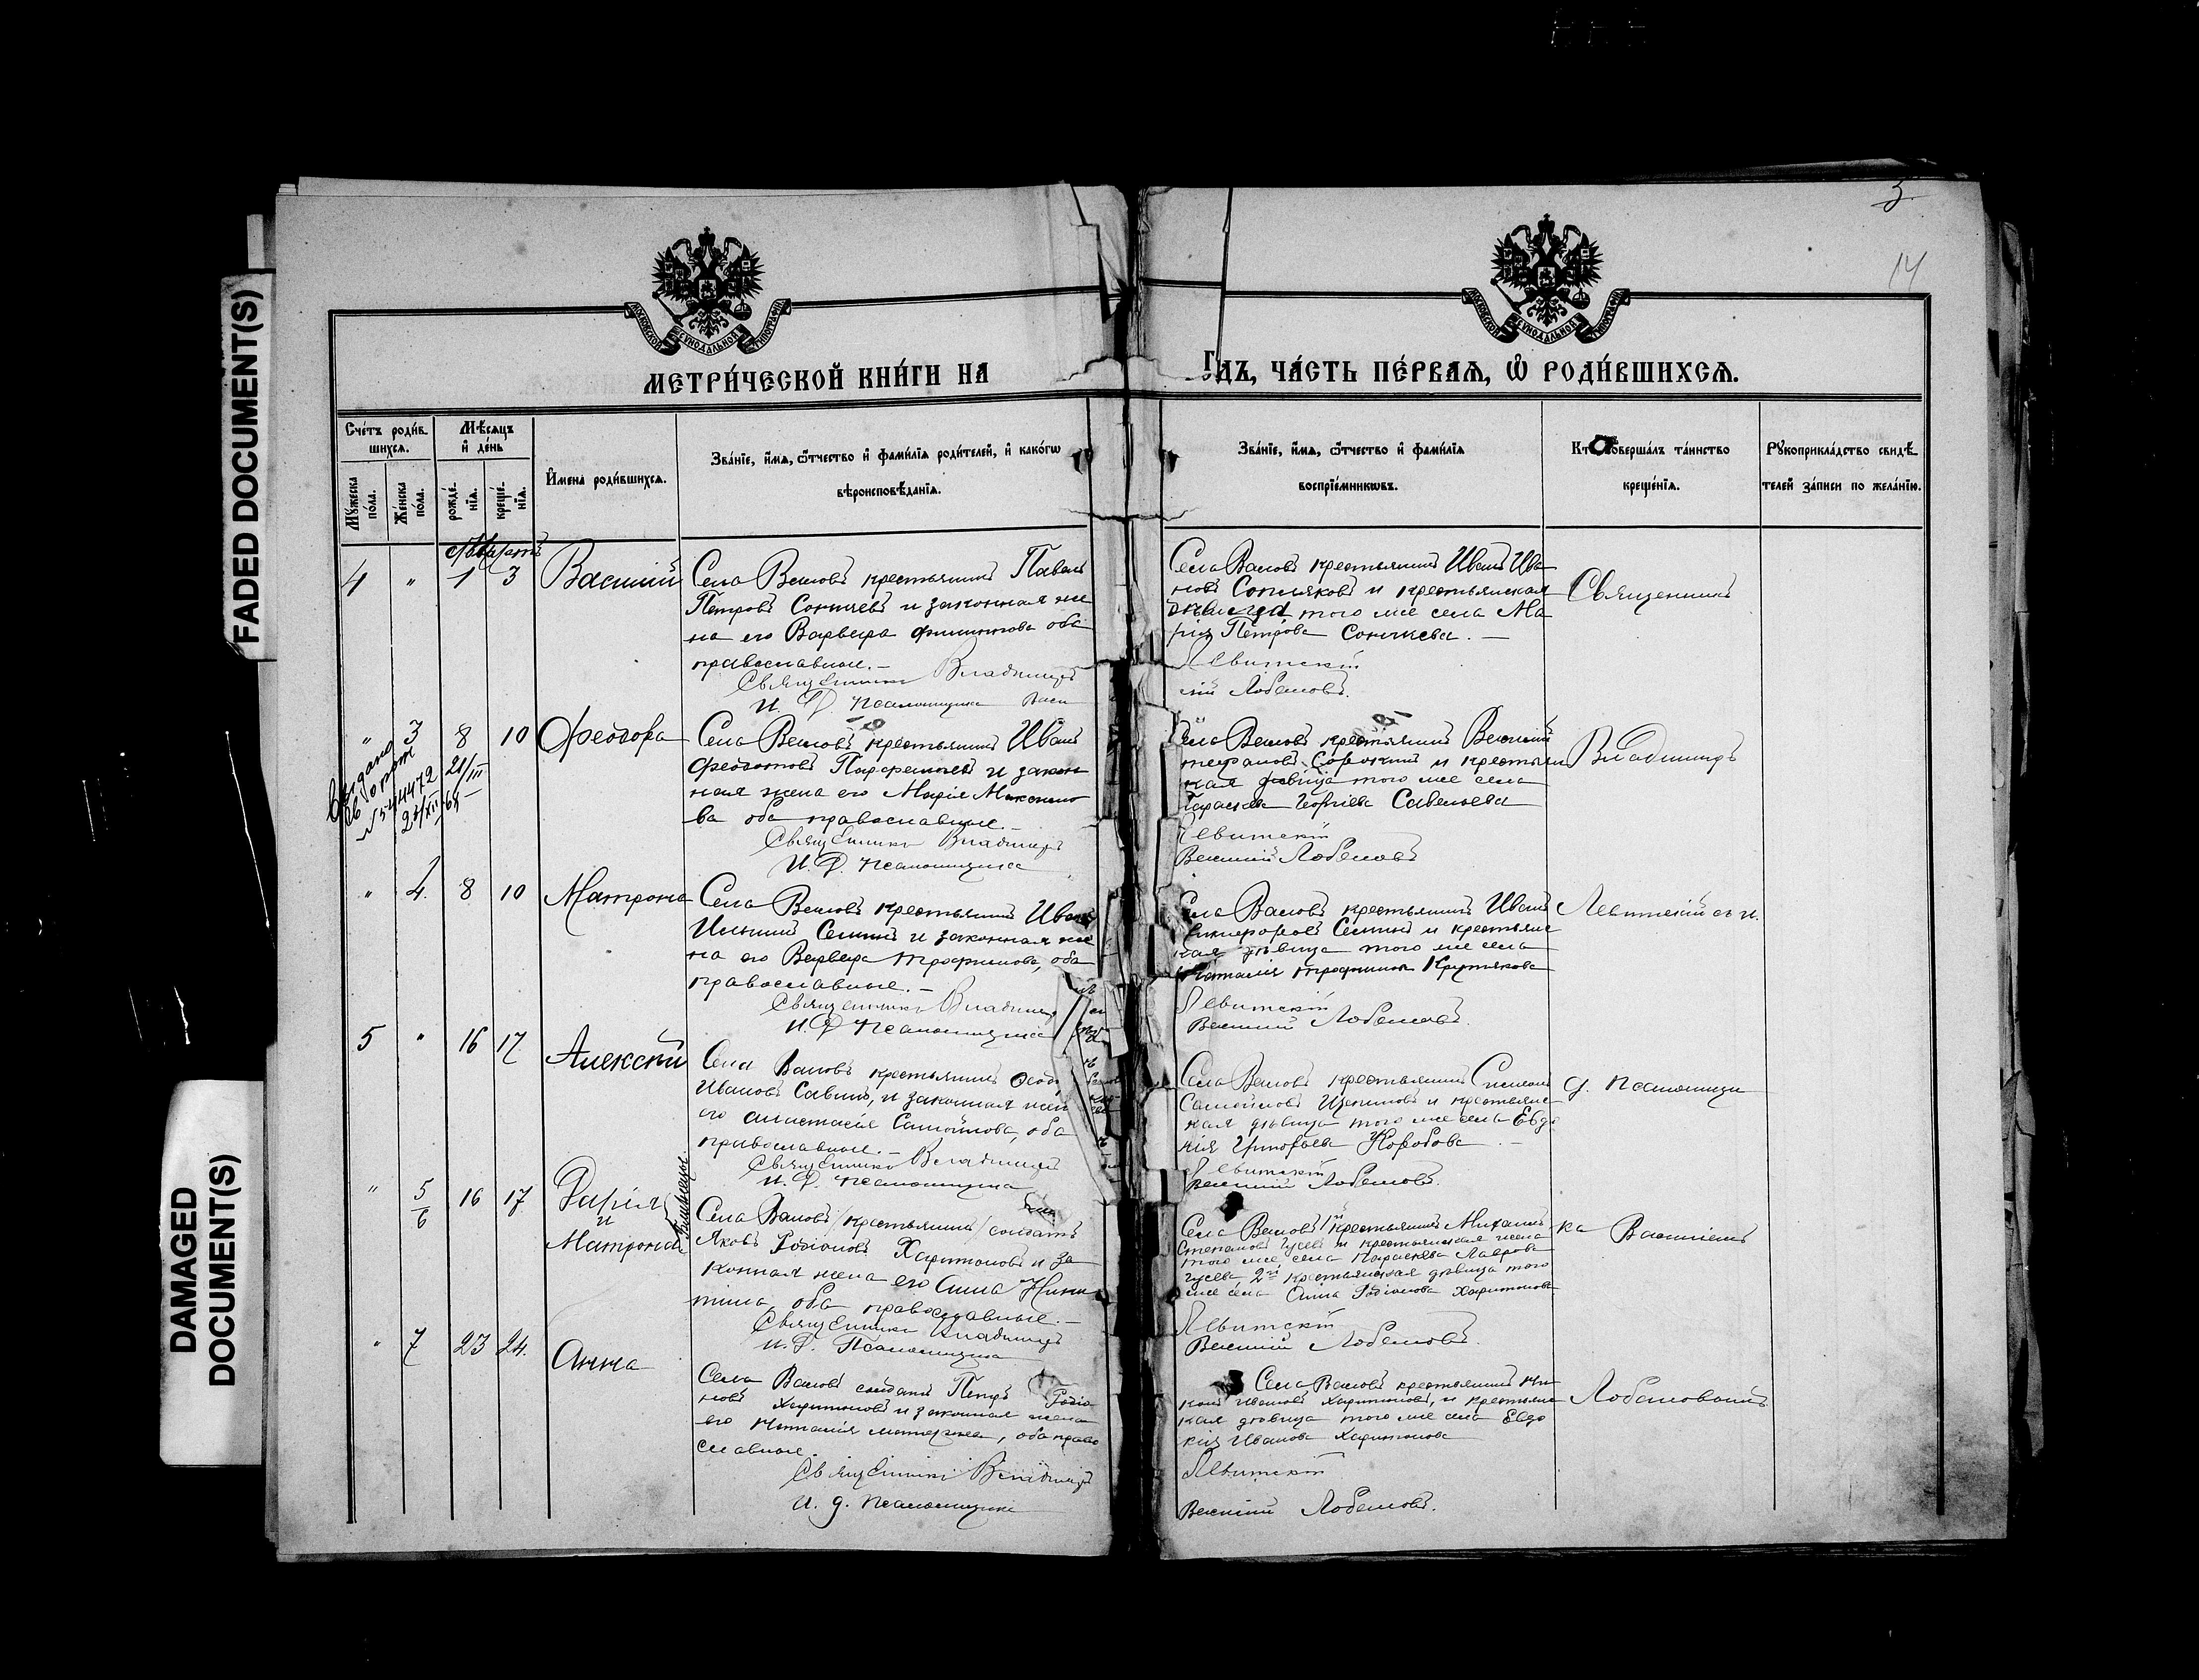 FADED DOCUMENT(S)
DAMAGED
DOCUMENT(S)
3
14
МОСКОВСКОЙ СѴНОДАЛЬНОЙ ТИПОГРАФІИ
МОСКОВСКОЙ СѴНОДАЛЬНОЙ ТИПОГРАФІИ
МЕТРИ́ЧЕСКОЙ КНИ́ГИ НА
ГДЪ, ЧА́СТЬ ПЕ́РВАѦ, Ѡ҆ РОДИ́ВШИХСѦ.
Сче́тъ роди́в-
шихсѧ.
Мꙋ́жеска
по́ла.
Же́нска
по́ла.
Мѣ́сѧцъ
и҆ де́нь
рожде́-
нїѧ.
креще́-
нїѧ.
И҆мена̀ роди́вшихсѧ.
Зва́нїе, и҆́мѧ, ѻ҆́тчество и҆ фами́лїѧ роди́телей, и҆ како́гѡ
вѣроисповѣ́данїѧ.
Зва́нїе, и҆́мѧ, ѻ҆́тчество и҆ фами́лїѧ
воспрїе́мникѡвъ.
Кто̀ соверша́лъ та́инство
креще́нїѧ.
Рꙋкоприкла́дство свидѣ́-
телей за́писи по жела́нїю.
4 " 1 3 Василій
Села Валовъ крестьянинъ Павелъ
Петровъ и законная же
на его Варвара Филиппова оба
православные.-
Священникъ Владиміръ
И. Д. Псаломщика Васи
Села Валовъ крестьянинъ Иванъ Ива
новъ и крестьянская
того же села Ма
рія Петрова
Левитскій
лій Лобановъ.
Священникъ
" 3 8 10 Феодора
Выдано
21/III
№ 544472
21/XII-65
Села Валовъ крестьянинъ Иванъ
Феодотовъ и закон
ная жена его Марія Максимо
ва оба православные.-
Священникъ Владиміръ
И. Д. Псаломщика
Села Валовъ крестьянинъ Василій
и крестьян
ская девица того же села
Параскева Георгіева Савельева
Левитскій
Василій Лобановъ
Владиміръ
" 4. 8 10 Матрона
Села Валовъ крестьянинъ Иванъ
Ильинъ Семинъ и законная же
на его Варвара Трофимова, оба
православные.-
Священникъ Владиміръ
И. Д. Псаломщика
Села Валовъ крестьянинъ Иванъ
Никифоровъ Семинъ и крестьянс
кая дѣвица того же села
Наталія Трофимова
Левитскій
Василій Лобановъ.
Левитскій съ и.
5 " 16 17 Алексѣй
Села Валовъ крестьянинъ
Ивановъ Савинъ, и законная жена
его Анастасія Самойлова, оба
православные.-
Священникъ Владиміръ
И. Д. Псаломщика
Села Валовъ крестьянинъ
Самойловъ и крестьянс
кая дѣвица того же села Евдо
кія Григорьева Коробова.-
Левитскій
Василій Лобановъ.
д. псаломщи
" 5 16 17 Дарія
6 и
Матрона
Близнецы
Села Валовъ /крестьянинъ/ солдатъ
Яковъ Родіоновъ Харитоновъ и за
конная жена его Анна Ники
тина, оба православные.-
Священникъ Владиміръ
И. Д. Псаломщика
Села Валовъ крестьянинъ Михаилъ
Степановъ Гусевъ и крестьянская жена
того же села Параскева Лаврова
Гусева 2й крестьянская дѣвица того
же села Анна Родіонова Харитонова
Левитскій
Василій Лобановъ.
ка Василіемъ
" 7 23 24. Анна
Села Валовъ солдатъ Петръ Родіо
новъ Харитоновъ и законная жена
его Наталія Матвѣева, оба право
славные.
Священникъ Владиміръ
И. д. псаломщика
Села Валовъ крестьянинъ Ни
конъ Ивановъ Харитоновъ, и крестьянс
кая дѣвица того же села Евдо
кія Иванова Харитонова
Левитскій
Василій Лобановъ.
Лобановымъ